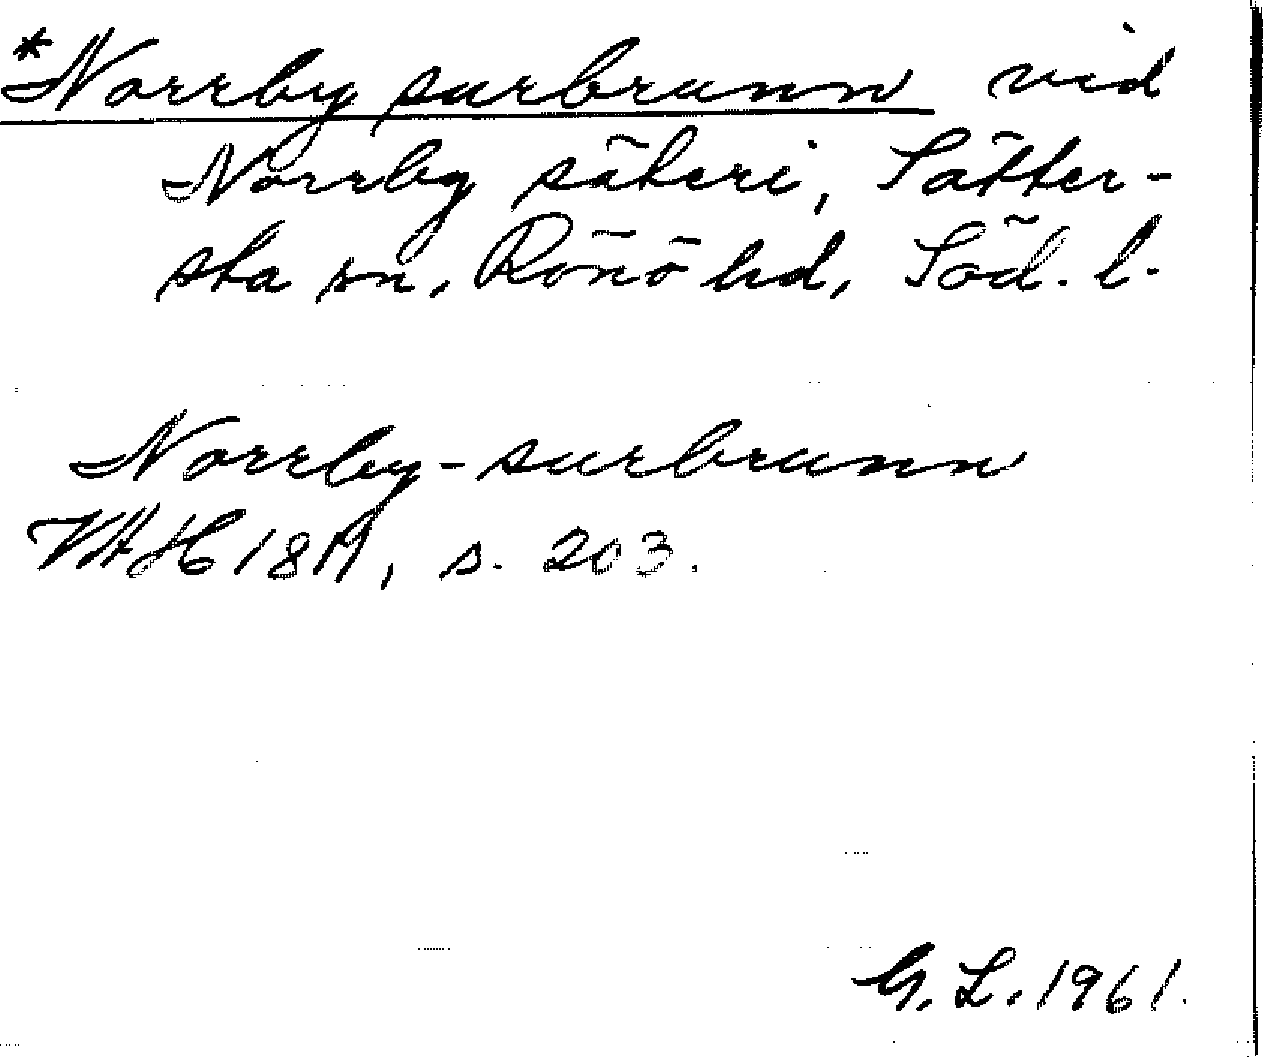 *Norrby surbrunn vid
Norrby säteri, Sätter-
sta sn, Rönö hd, Söd. l.
Norrby-surbrunn
VAH 1819, s. 203.
G. L. 1961.